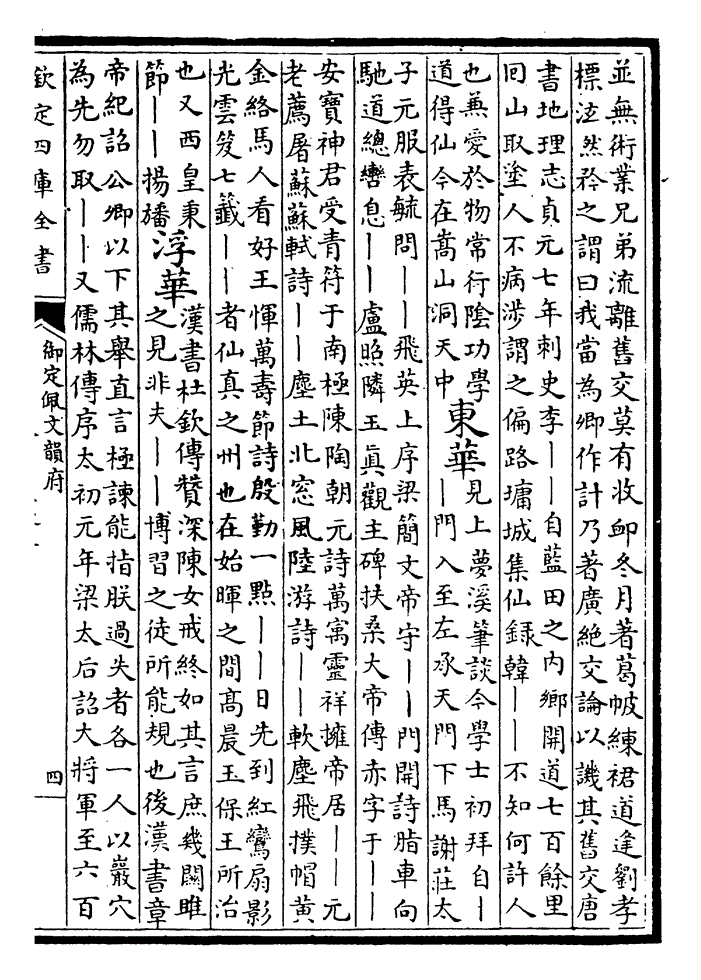 並無術業兄弟流離舊交莫有收卹冬月著葛帔練裙道逢劉孝
標泫然矜之謂曰我當為卿作計乃著廣絶交論以譏其舊交唐
書地理志貞元七年刺史李丨丨自藍田之内鄉開道七百餘里
囘山取塗人不病渉謂之偏路墉城集仙録韓丨丨不知何許人
也兼愛於物常行陰功學
道得仙今在嵩山洞天中
東華
見上夢溪筆談今學士初拜自丨
丨門入至左承天門下馬謝莊太
子元服表毓問丨丨飛英上序梁簡文帝守丨丨門開詩脂車向
馳道總轡息丨丨盧照隣玉真觀主碑扶桑大帝傳赤字于丨丨
安寶神君受青符于南極陳陶朝元詩萬寓靈祥擁帝居丨丨元
老薦屠蘇蘇軾詩丨丨塵土北窓風陸游詩丨丨軟塵飛撲帽黄
金絡馬人看好王惲萬壽節詩殷勤一點丨丨日先到紅鸞扇影
光雲笈七籤丨丨者仙真之州也在始暉之間高晨玉保王所治
也又西皇東
節丨丨揚旛
浮華
漢書杜欽傳贊深陳女戒終如其言庶幾關雎
之見非夫丨丨博習之徒所能規也後漢書章
帝紀詔公卿以下其舉直言極諫能指朕過失者各一人以巖穴
為先勿取丨丨又儒林傳序太初元年梁太后詔大將軍至六百
欽定四庫全書
御定佩文韻府
四